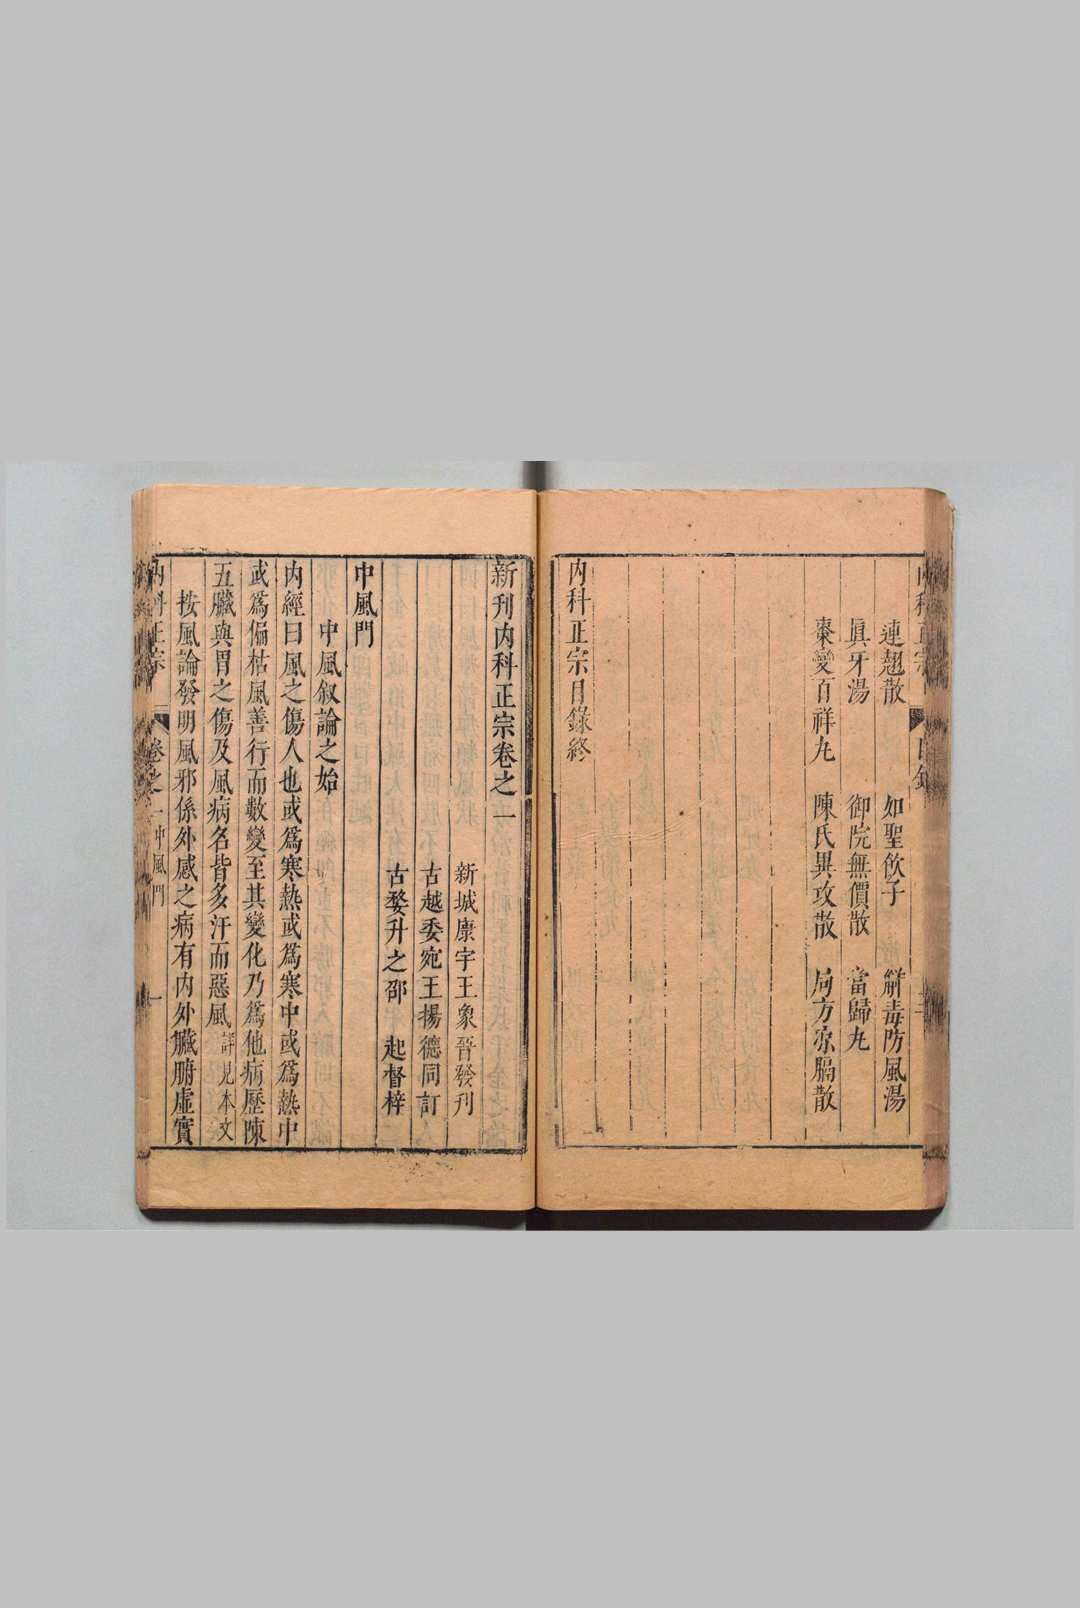 連翹散　如聖飲子　觧毒防風湯
眞牙湯　御院無價散　當歸丸
棗變百祥丸　陳氏異攻散　局方凉膈散
内科正宗目錄終
新刊内科正宗卷之一
新城康宇王象晉發刊
古越委宛王揚德同訂
古婺升之邵　起督梓
中風門
中風叙論之始
内經曰風之傷人也或爲寒熱或爲寒中或爲熱中
或爲偏枯風善行而數變至其變化乃爲他病歷陳
五臟與胃之傷及風病名皆多汗而惡風詳見本文
按風論發明風邪係外感之病有内外臟腑虛實
内科正宗　卷之一中風門　一